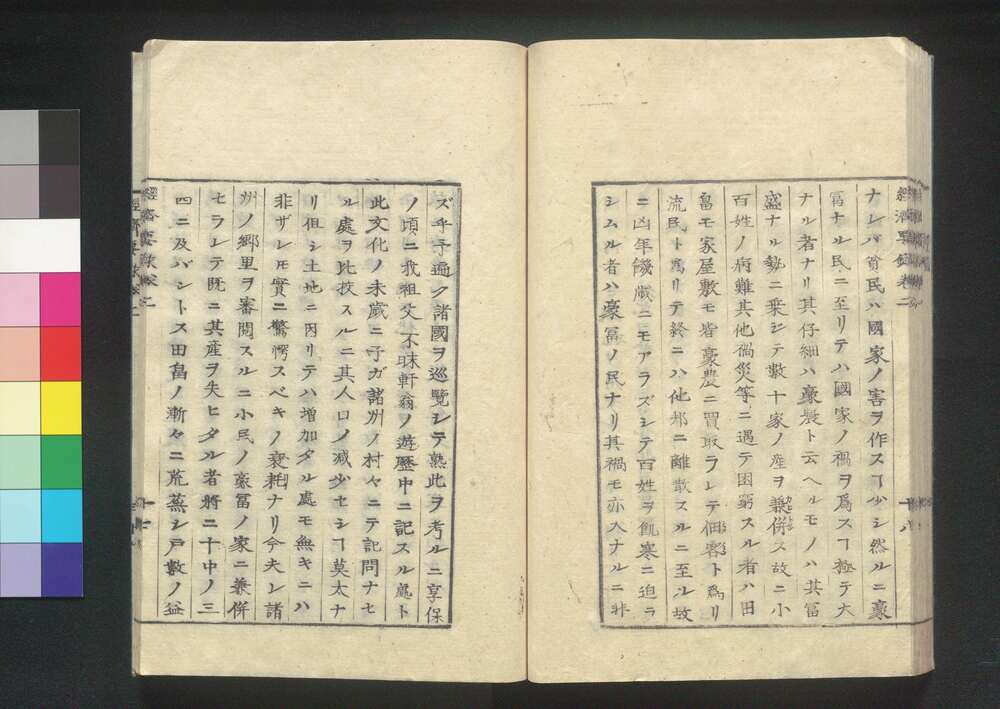 經濟要録卷二
ナレバ貧民ハ國家ノ害ヲ作スヿ少シ然ルニ豪
冨ナル民ニ至リテハ國家ノ禍ヲ爲スヿ極テ大
ナル者ナリ其仔細ハ豪農ト云ヘルモノハ其冨
盛ナル勢ニ乗シテ數十家ノ産ヲ兼併ス故ニ小
百姓ノ病難其他禍災等ニ遇テ困窮スル者ハ田
畠モ家屋敷モ皆豪農ニ買取ラレテ佃客ト爲リ
流民ト爲リテ終ニハ他邦ニ離散スルニ至ル故
ニ凶年饑歳ニモアラズシテ百姓ヲ飢寒ニ迫ラ
シムル者ハ豪冨ノ民ナリ其禍モ亦大ナルニ非
十八
ズ乎予遍ク諸國ヲ巡覧シテ熟此ヲ考ルニ享保
ノ頃ニ我祖父不昧軒翁ノ遊歴中ニ記スル處ト
此文化ノ末歳ニ予ガ諸州ノ村々ニテ記問ナセ
ル處ヲ比挍スルニ其人口ノ减少セシヿ莫太ナ
リ但シ土地ニ因リテハ増加タル處モ無キニハ
非ザレモ實ニ驚愕スベキノ衰耗ナリ今夫レ諸
州ノ郷里ヲ審閲スルニ小民ノ豪冨ノ家ニ兼併
セラレテ既ニ其産ヲ失ヒタル者將ニ十中ノ三
四ニ及バントス田畠ノ漸々ニ荒蕪シ戸數ノ益